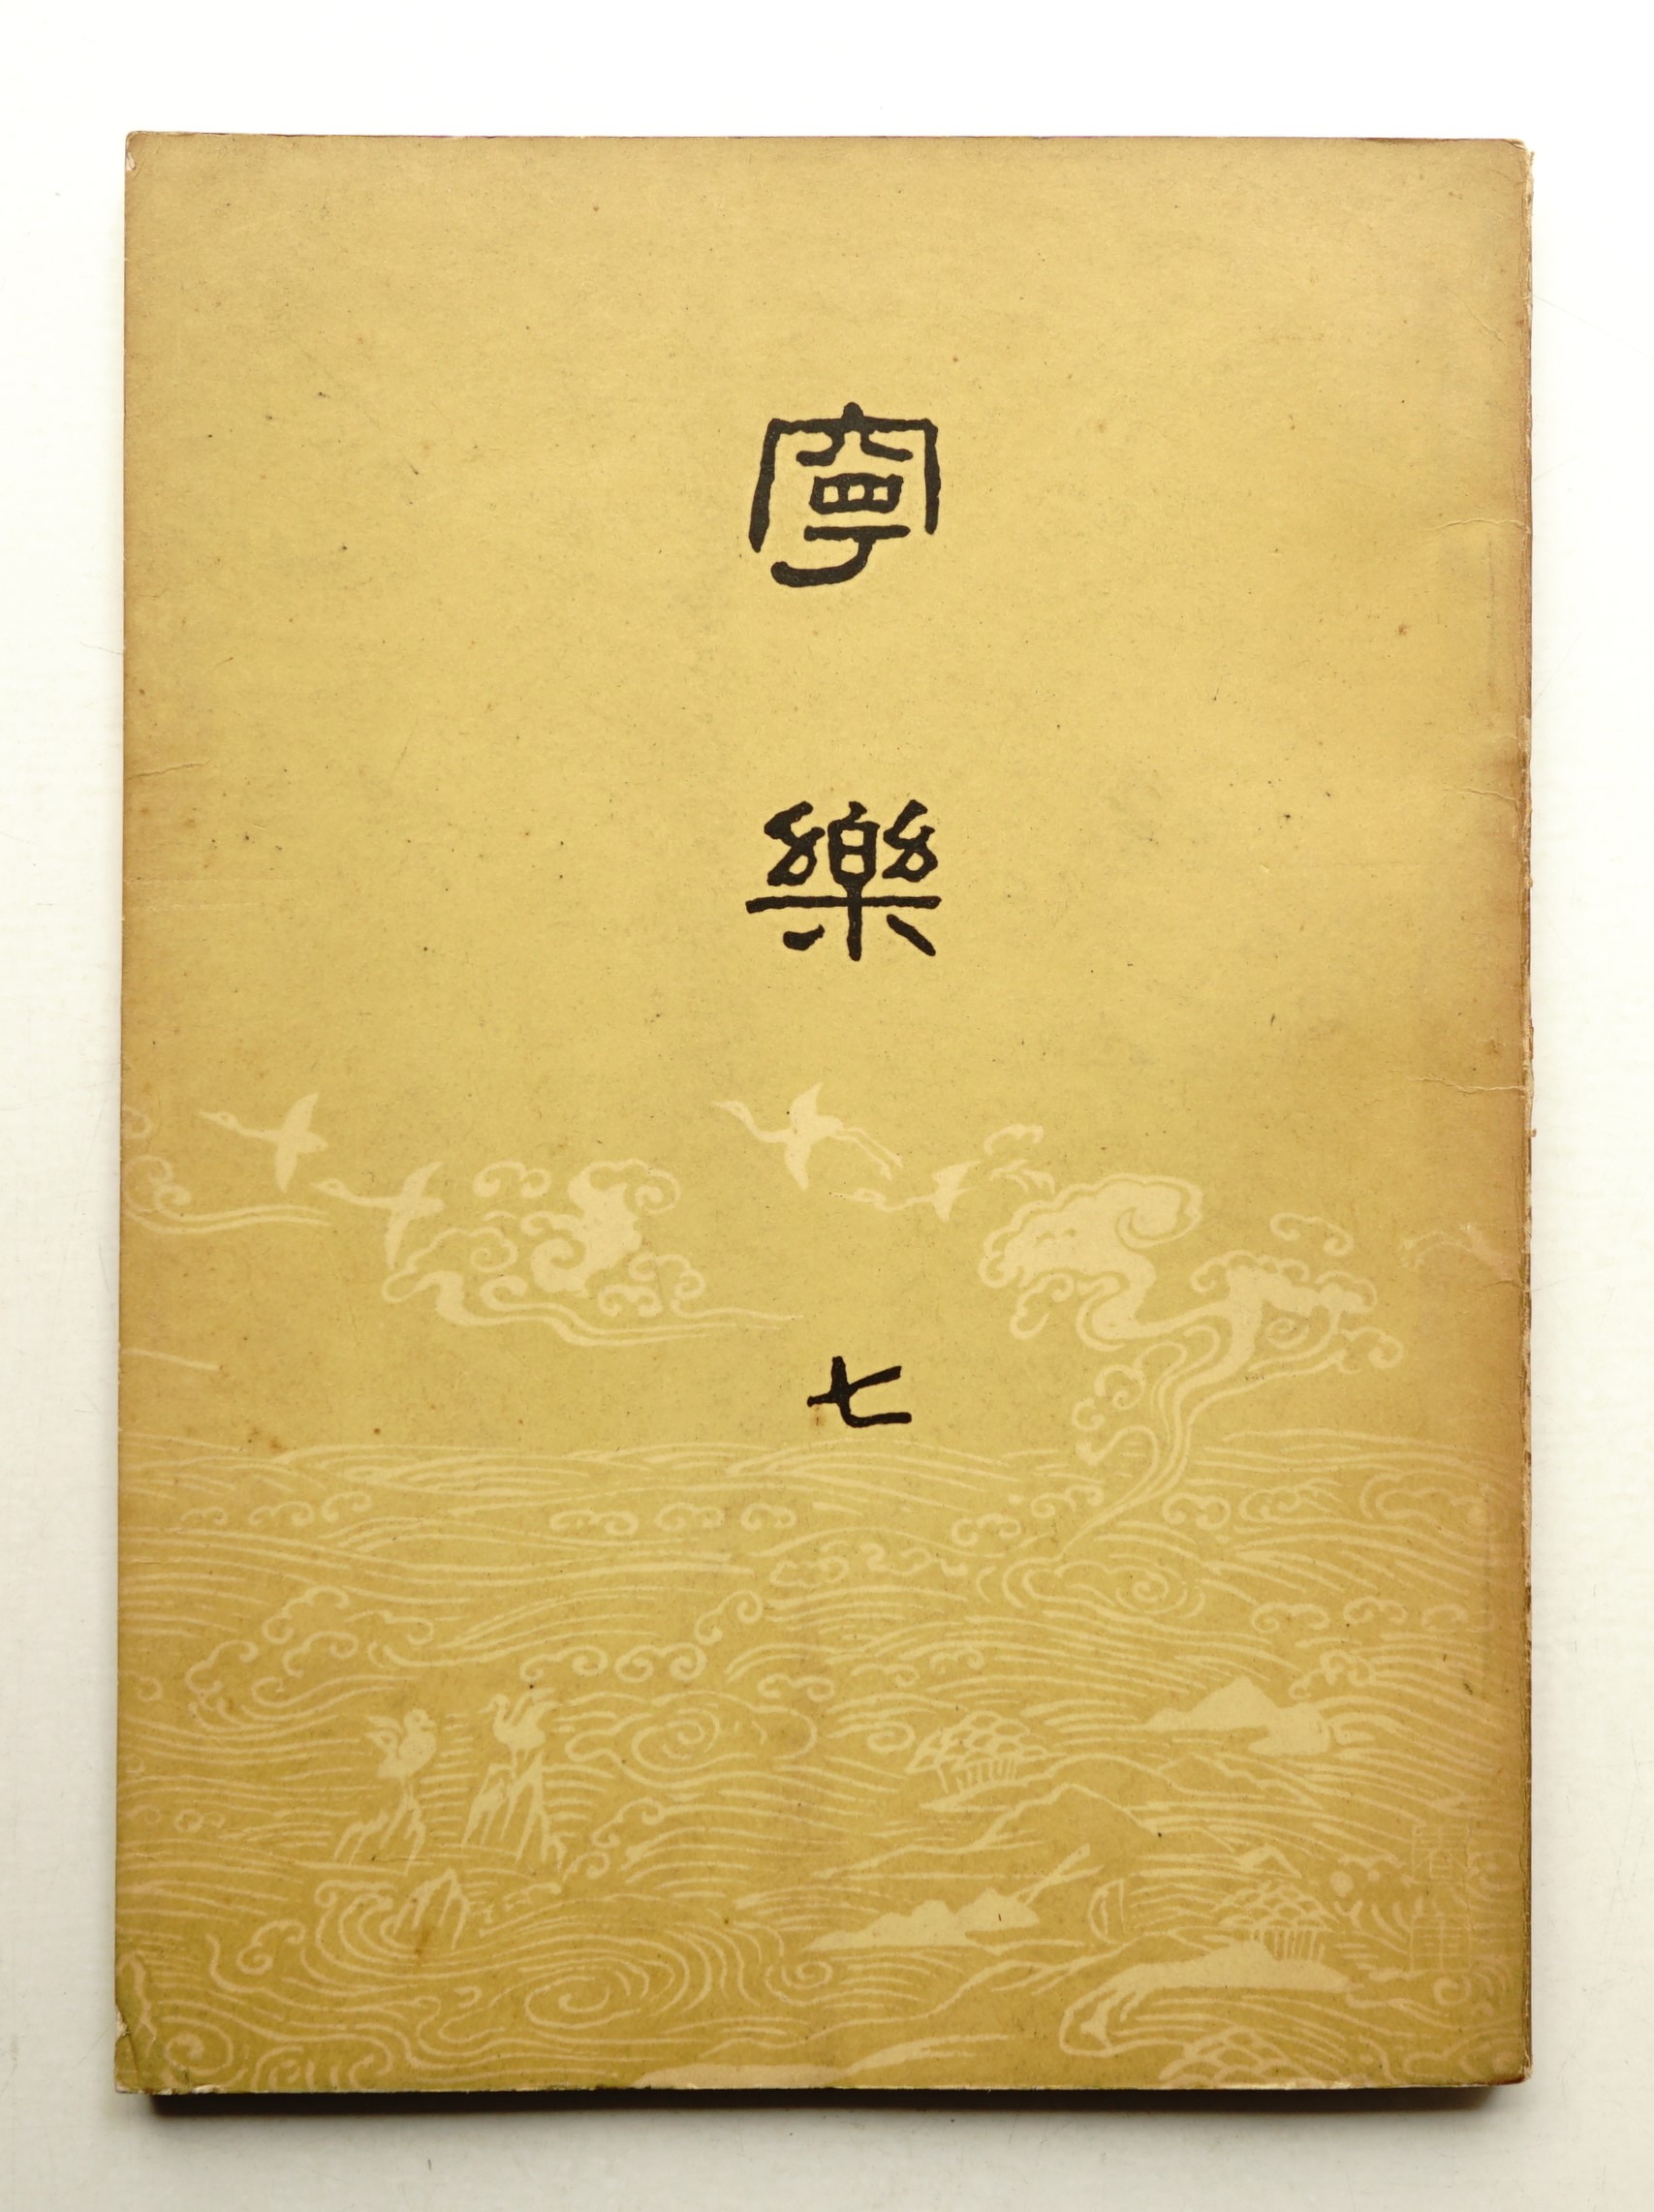 寧
樂
七